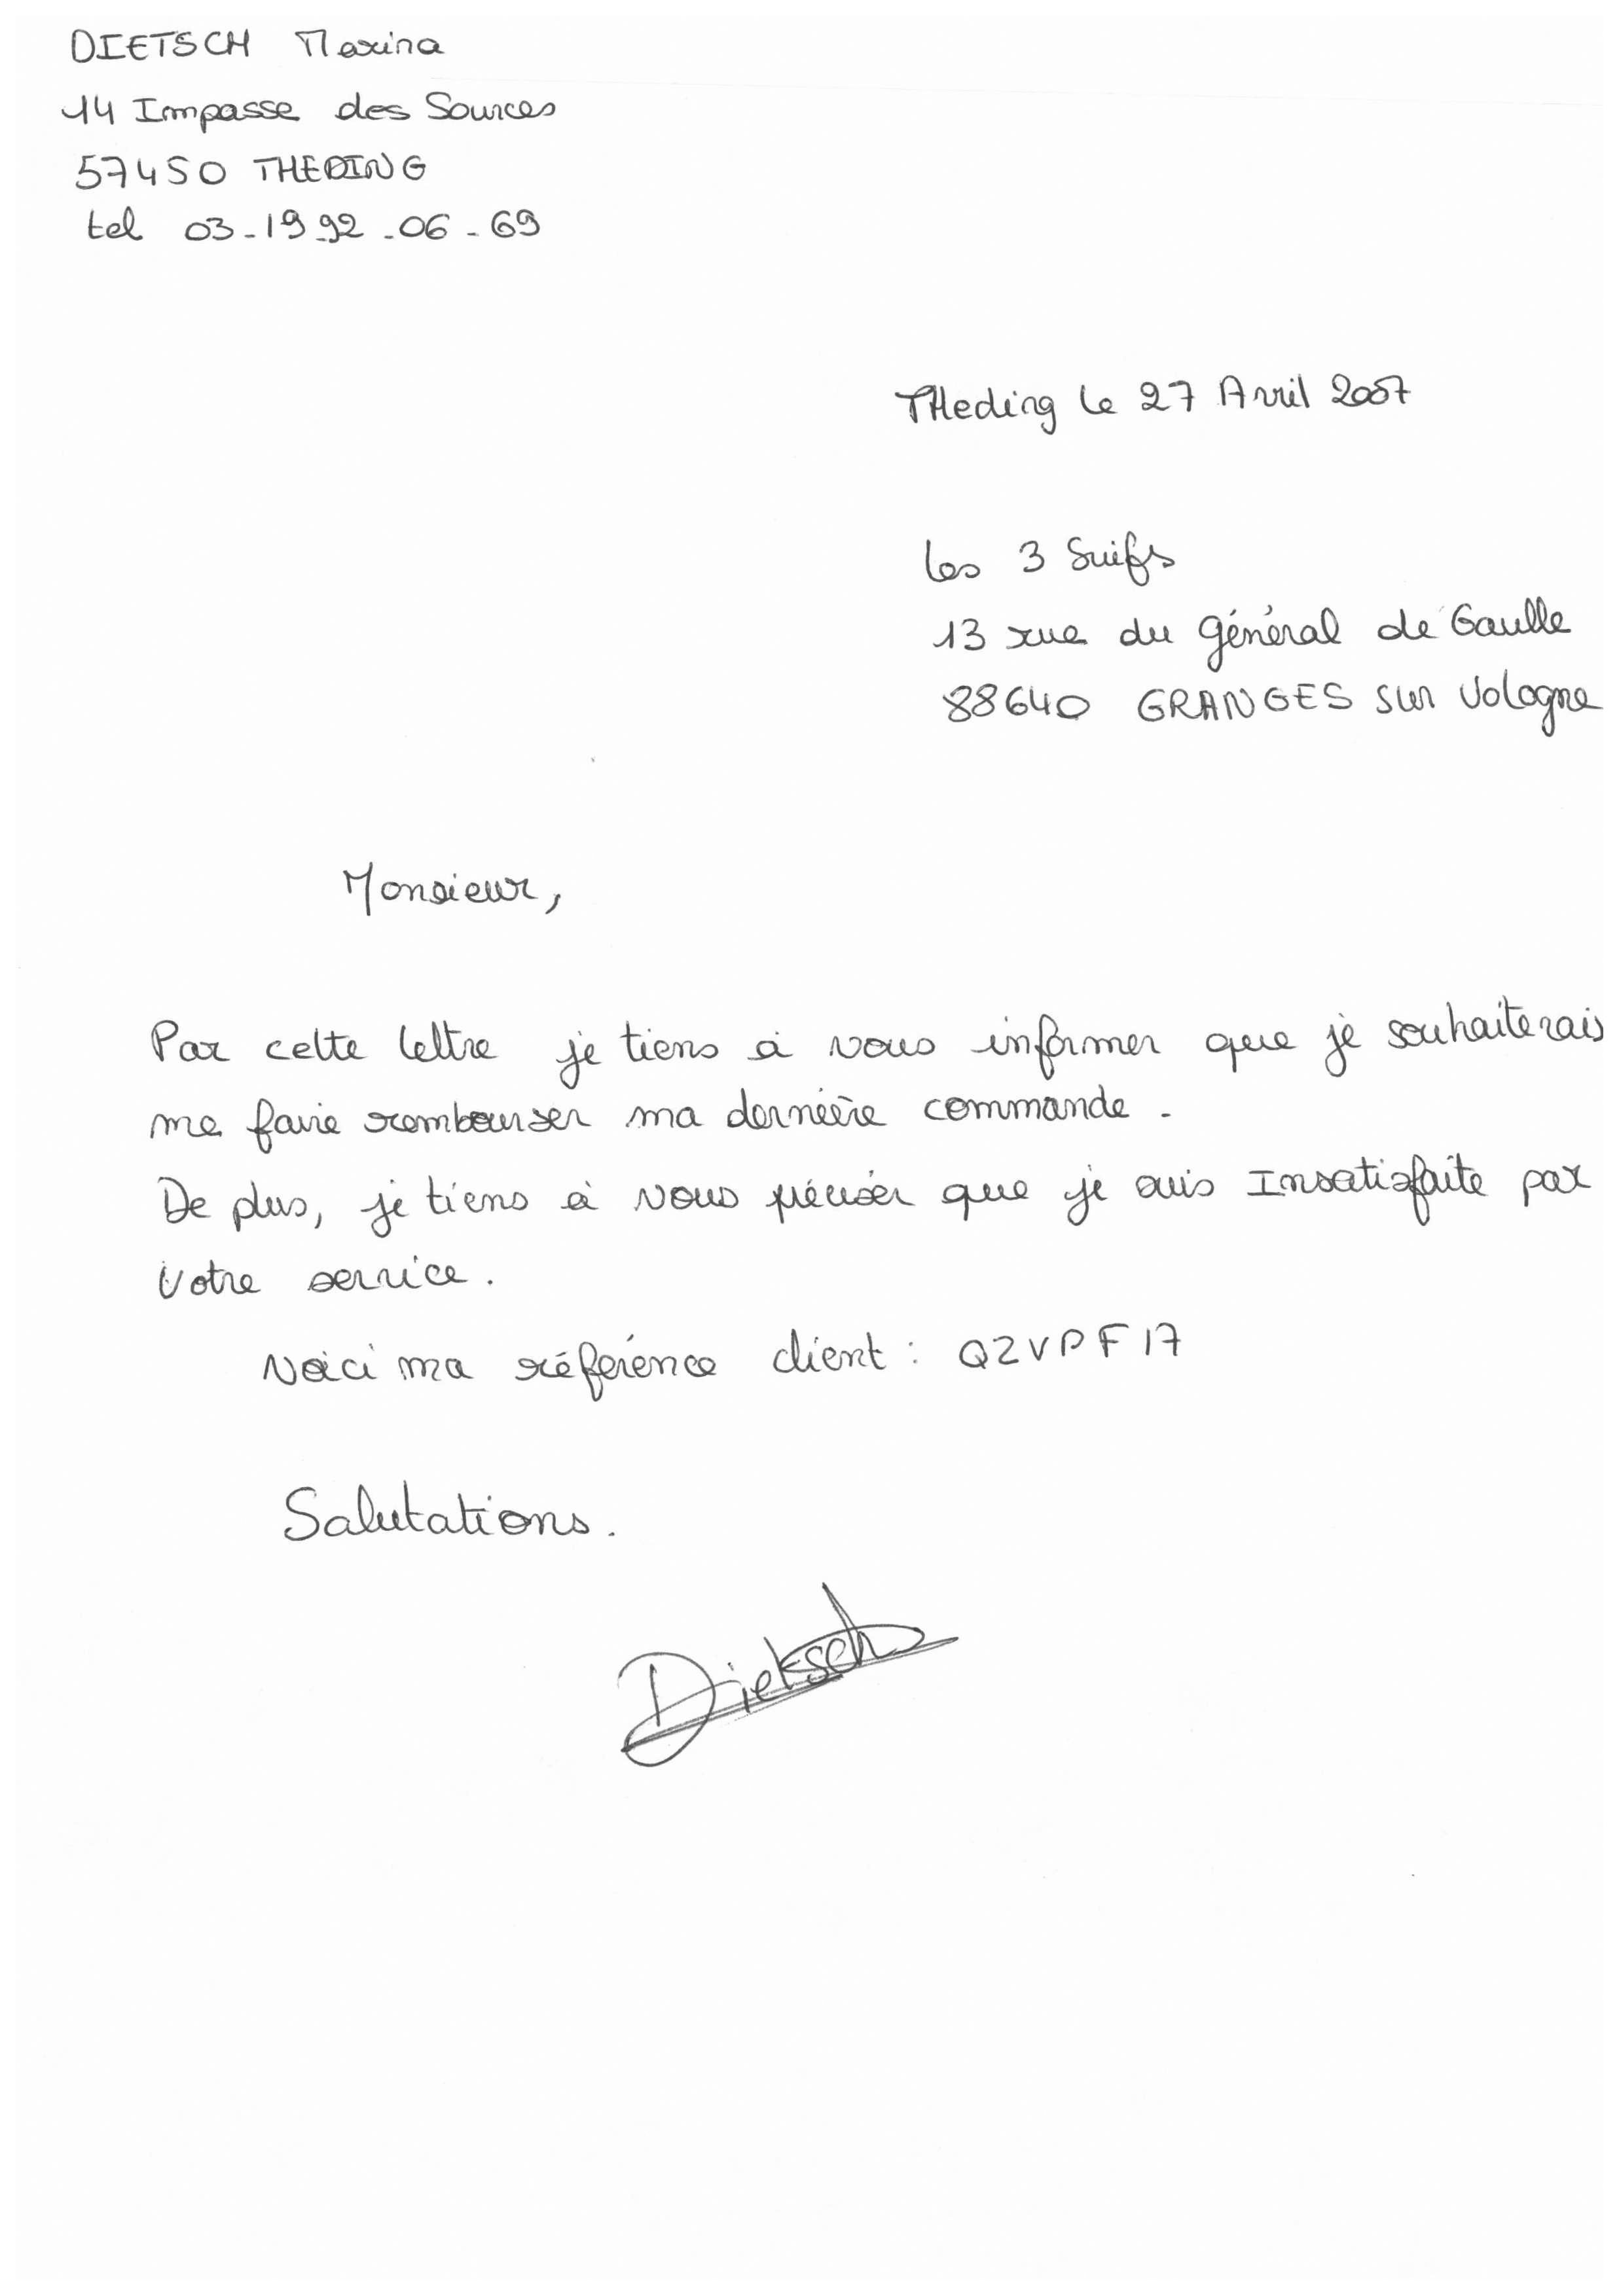 DIETSCH Maxina
14 Impasse des Sources
57450 THEDING
tel 03-19-92-06-69
THeding le 27 Avril 2007
les 3 Suifs
13 rue du général de Gaulle
88640 GRANGES sur Vologne
Monsieur,
Par cette lettre je tiens à vous informer que je souhaiterais
me faire rembourser ma dernière commande.
De plus, je tiens à vous préciser que je suis Insatisfaite par
votre service.
Voici ma référence client : QZVPF17
Salutations.
Dietsch